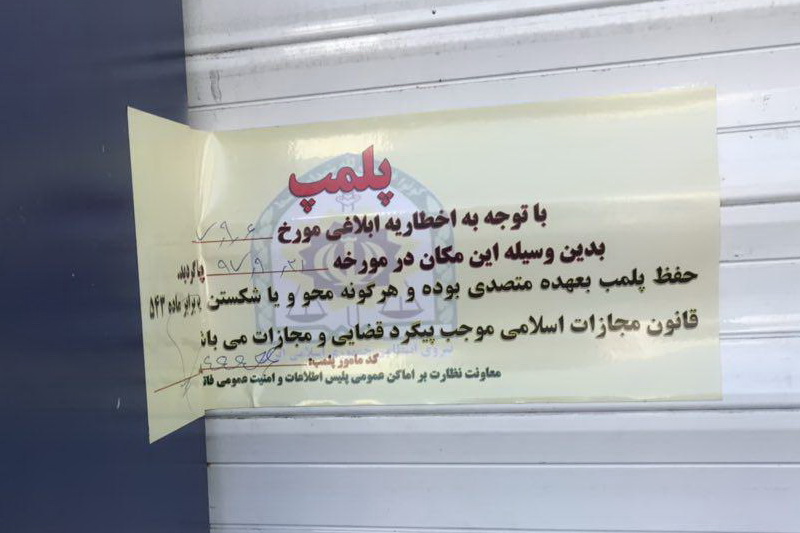 پلمپ
با توجه به اخطاریه ابلاغی مورخ ۷,۹,۶
بدین وسیله این مکان در مورخه ۹۷,۹,۲۱ گردید.
حفظ پلمپ بعهده متصدی بوده و هرگونه محو و یا شکستن برابر ماده ۵۴۳
قانون مجازات اسلامی موجب پیگرد قضایی و مجازات می باشد
کد مامور پلمپ:
معاونت نظارت بر اماکن عمومی پلیس اطلاعات و امنیت عمومی